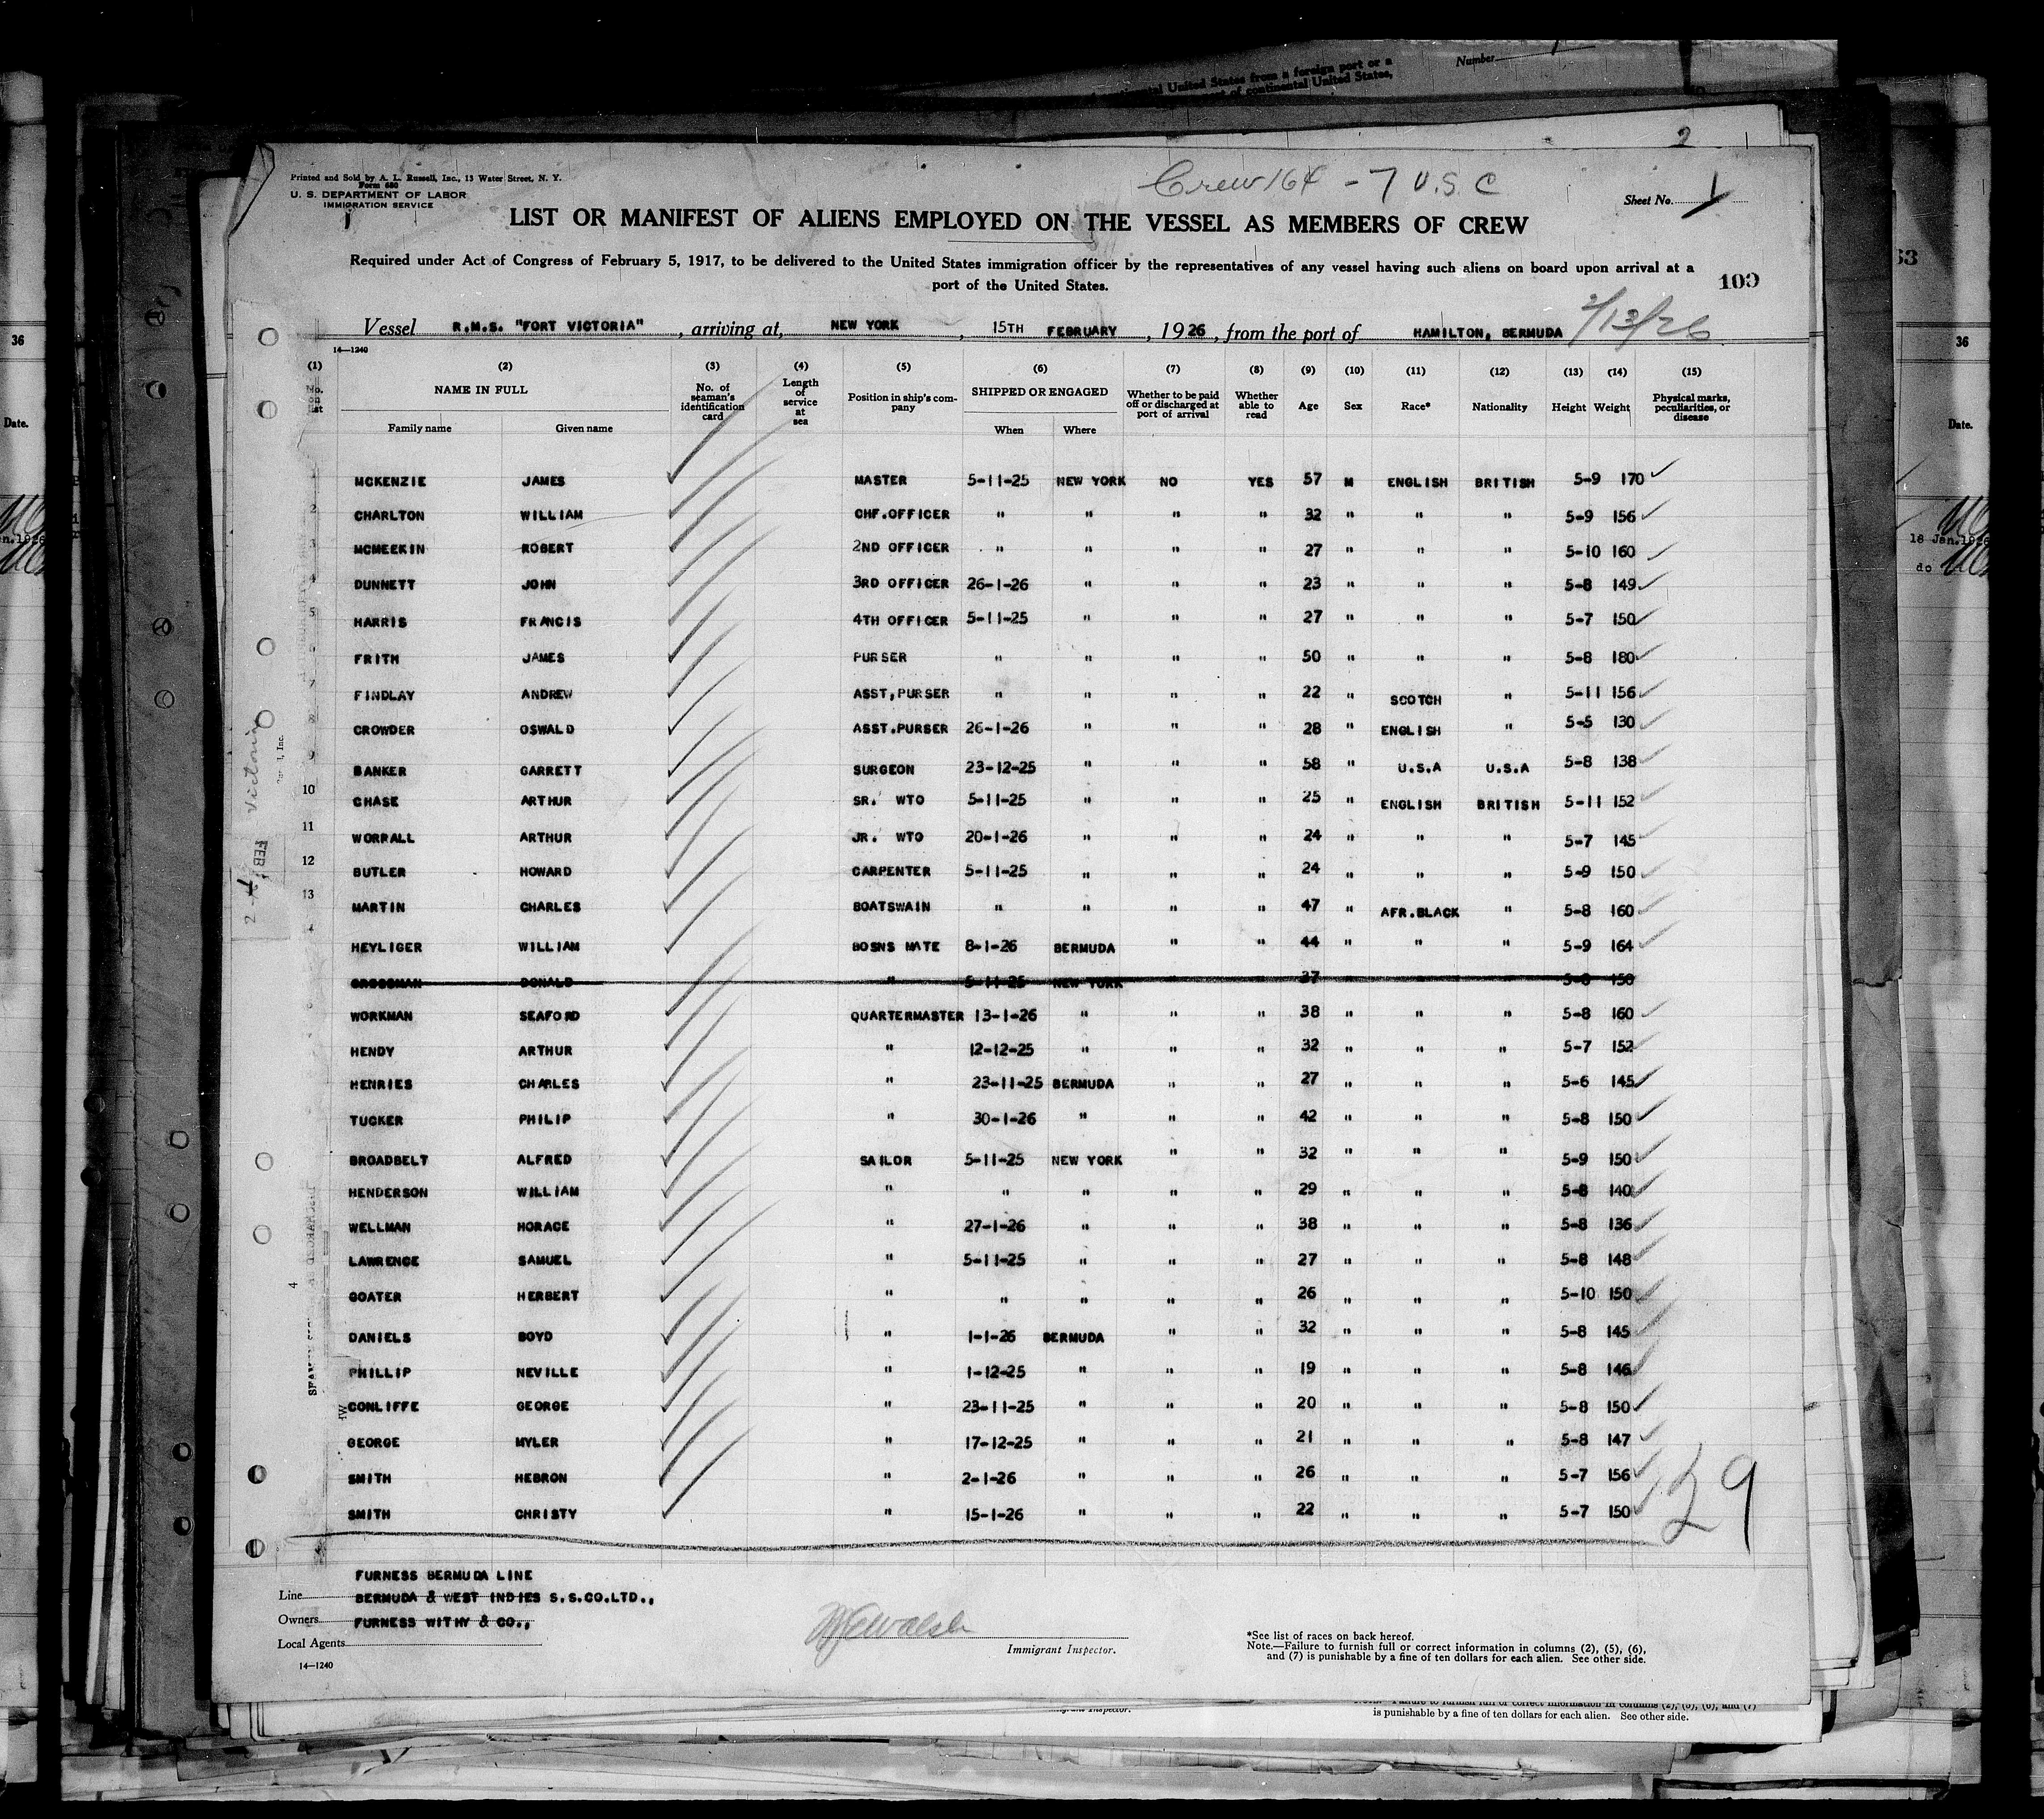 Number
continental United States from a foreign port or a
port of continental United States,
2
Crew 164 - 7 U.S.C
Printed and Sold by A. L. Russell, Inc., 13 Water Street, N. Y.
Form 680
U. S. DEPARTMENT OF LABOR
IMMIGRATION SERVICE
Sheet No. 1
LIST OR MANIFEST OF ALIENS EMPLOYED ON THE VESSEL AS MEMBERS OF CREW
Required under Act of Congress of February 5, 1917, to be delivered to the United States immigration officer by the representatives of any vessel having such aliens on board upon arrival at a
port of the United States.
109
Vessel R.M.S. "FORT VICTORIA", arriving at, NEW YORK, 15TH FEBRUARY, 1926, from the port of HAMILTON, BERMUDA 2/13/26
14—1240
(1) (2) (3) (4) (5) (6) (7) (8) (9) (10) (11) (12) (13) (14) (15)
No. on list NAME IN FULL No. of seaman's identification card Length of service at sea Position in ship's company SHIPPED OR ENGAGED Whether to be paid off or discharged at port of arrival Whether able to read Age Sex Race* Nationality Height Weight Physical marks, peculiarities, or disease
Family name Given name When Where
MCKENZIE JAMES MASTER 5-11-25 NEW YORK NO YES 57 M ENGLISH BRITISH 5-9 170
2 CHARLTON WILLIAM CHF.OFFICER " " " " 32 " " " 5-9 156
3 MCMEEKIN ROBERT 2ND OFFICER " " " " 27 " " " 5-10 160
4 DUNNETT JOHN 3RD OFFICER 26-1-26 " " " 23 " " " 5-8 149
5 HARRIS FRANCIS 4TH OFFICER 5-11-25 " " " 27 " " " 5-7 150
FRITH JAMES PURSER " " " " 50 " " " 5-8 180
7 FINDLAY ANDREW ASST,PURSER " " " " 22 " SCOTCH " 5-11 156
8 CROWDER OSWALD ASST.PURSER 26-1-26 " " " 28 " ENGLISH " 5-5 130
9 BANKER GARRETT SURGEON 23-12-25 " " " 58 " U.S.A U.S.A 5-8 138
10 CHASE ARTHUR SR. WTO 5-11-25 " " " 25 " ENGLISH BRITISH 5-11 152
11 WORRALL ARTHUR JR. WTO 20-1-26 " " " 24 " " " 5-7 145
12 BUTLER HOWARD CARPENTER 5-11-25 " " " 24 " " " 5-9 150
13 MARTIN CHARLES BOATSWAIN " " " " 47 " AFR.BLACK " 5-8 160
HEYLIGER WILLIAM BOSNS MATE 8-1-26 BERMUDA " " 44 " " " 5-9 164
CROSSMAN DONALD " 5-11-25 NEW YORK " " 37 " " " 5-8 150
WORKMAN SEAFORD QUARTERMASTER 13-1-26 " " " 38 " " " 5-8 160
HENDY ARTHUR " 12-12-25 " " " 32 " " " 5-7 152
HENRIES CHARLES " 23-11-25 BERMUDA " " 27 " " " 5-6 145
TUCKER PHILIP " 30-1-26 " " " 42 " " " 5-8 150
BROADBELT ALFRED SAILOR 5-11-25 NEW YORK " " 32 " " " 5-9 150
HENDERSON WILLIAM " " " " " 29 " " " 5-8 140
WELLMAN HORACE " 27-1-26 " " " 38 " " " 5-8 136
LAWRENCE SAMUEL " 5-11-25 " " " 27 " " " 5-8 148
GOATER HERBERT " " " " " 26 " " " 5-10 150
DANIELS BOYD " 1-1-26 BERMUDA " " 32 " " " 5-8 145
PHILLIP NEVILLE " 1-12-25 " " " 19 " " " 5-8 146
CONLIFFE GEORGE " 23-11-25 " " " 20 " " " 5-8 150
GEORGE MYLER " 17-12-25 " " " 21 " " " 5-8 147
SMITH HEBRON " 2-1-26 " " " 26 " " " 5-7 156
SMITH CHRISTY " 15-1-26 " " " 22 " " " 5-7 150
29
FURNESS BERMUDA LINE
Line BERMUDA & WEST INDIES S.S.CO.LTD.,
Owners FURNESS WITHY & CO.,
Local Agents
Walsh
Immigrant Inspector.
14—1240
*See list of races on back hereof.
Note.—Failure to furnish full or correct information in columns (2), (5), (6),
and (7) is punishable by a fine of ten dollars for each alien. See other side.
is punishable by a fine of ten dollars for each alien. See other side.
Victoria
FEB
36
Date.
63
36
Date.
18 Jan.1926
do